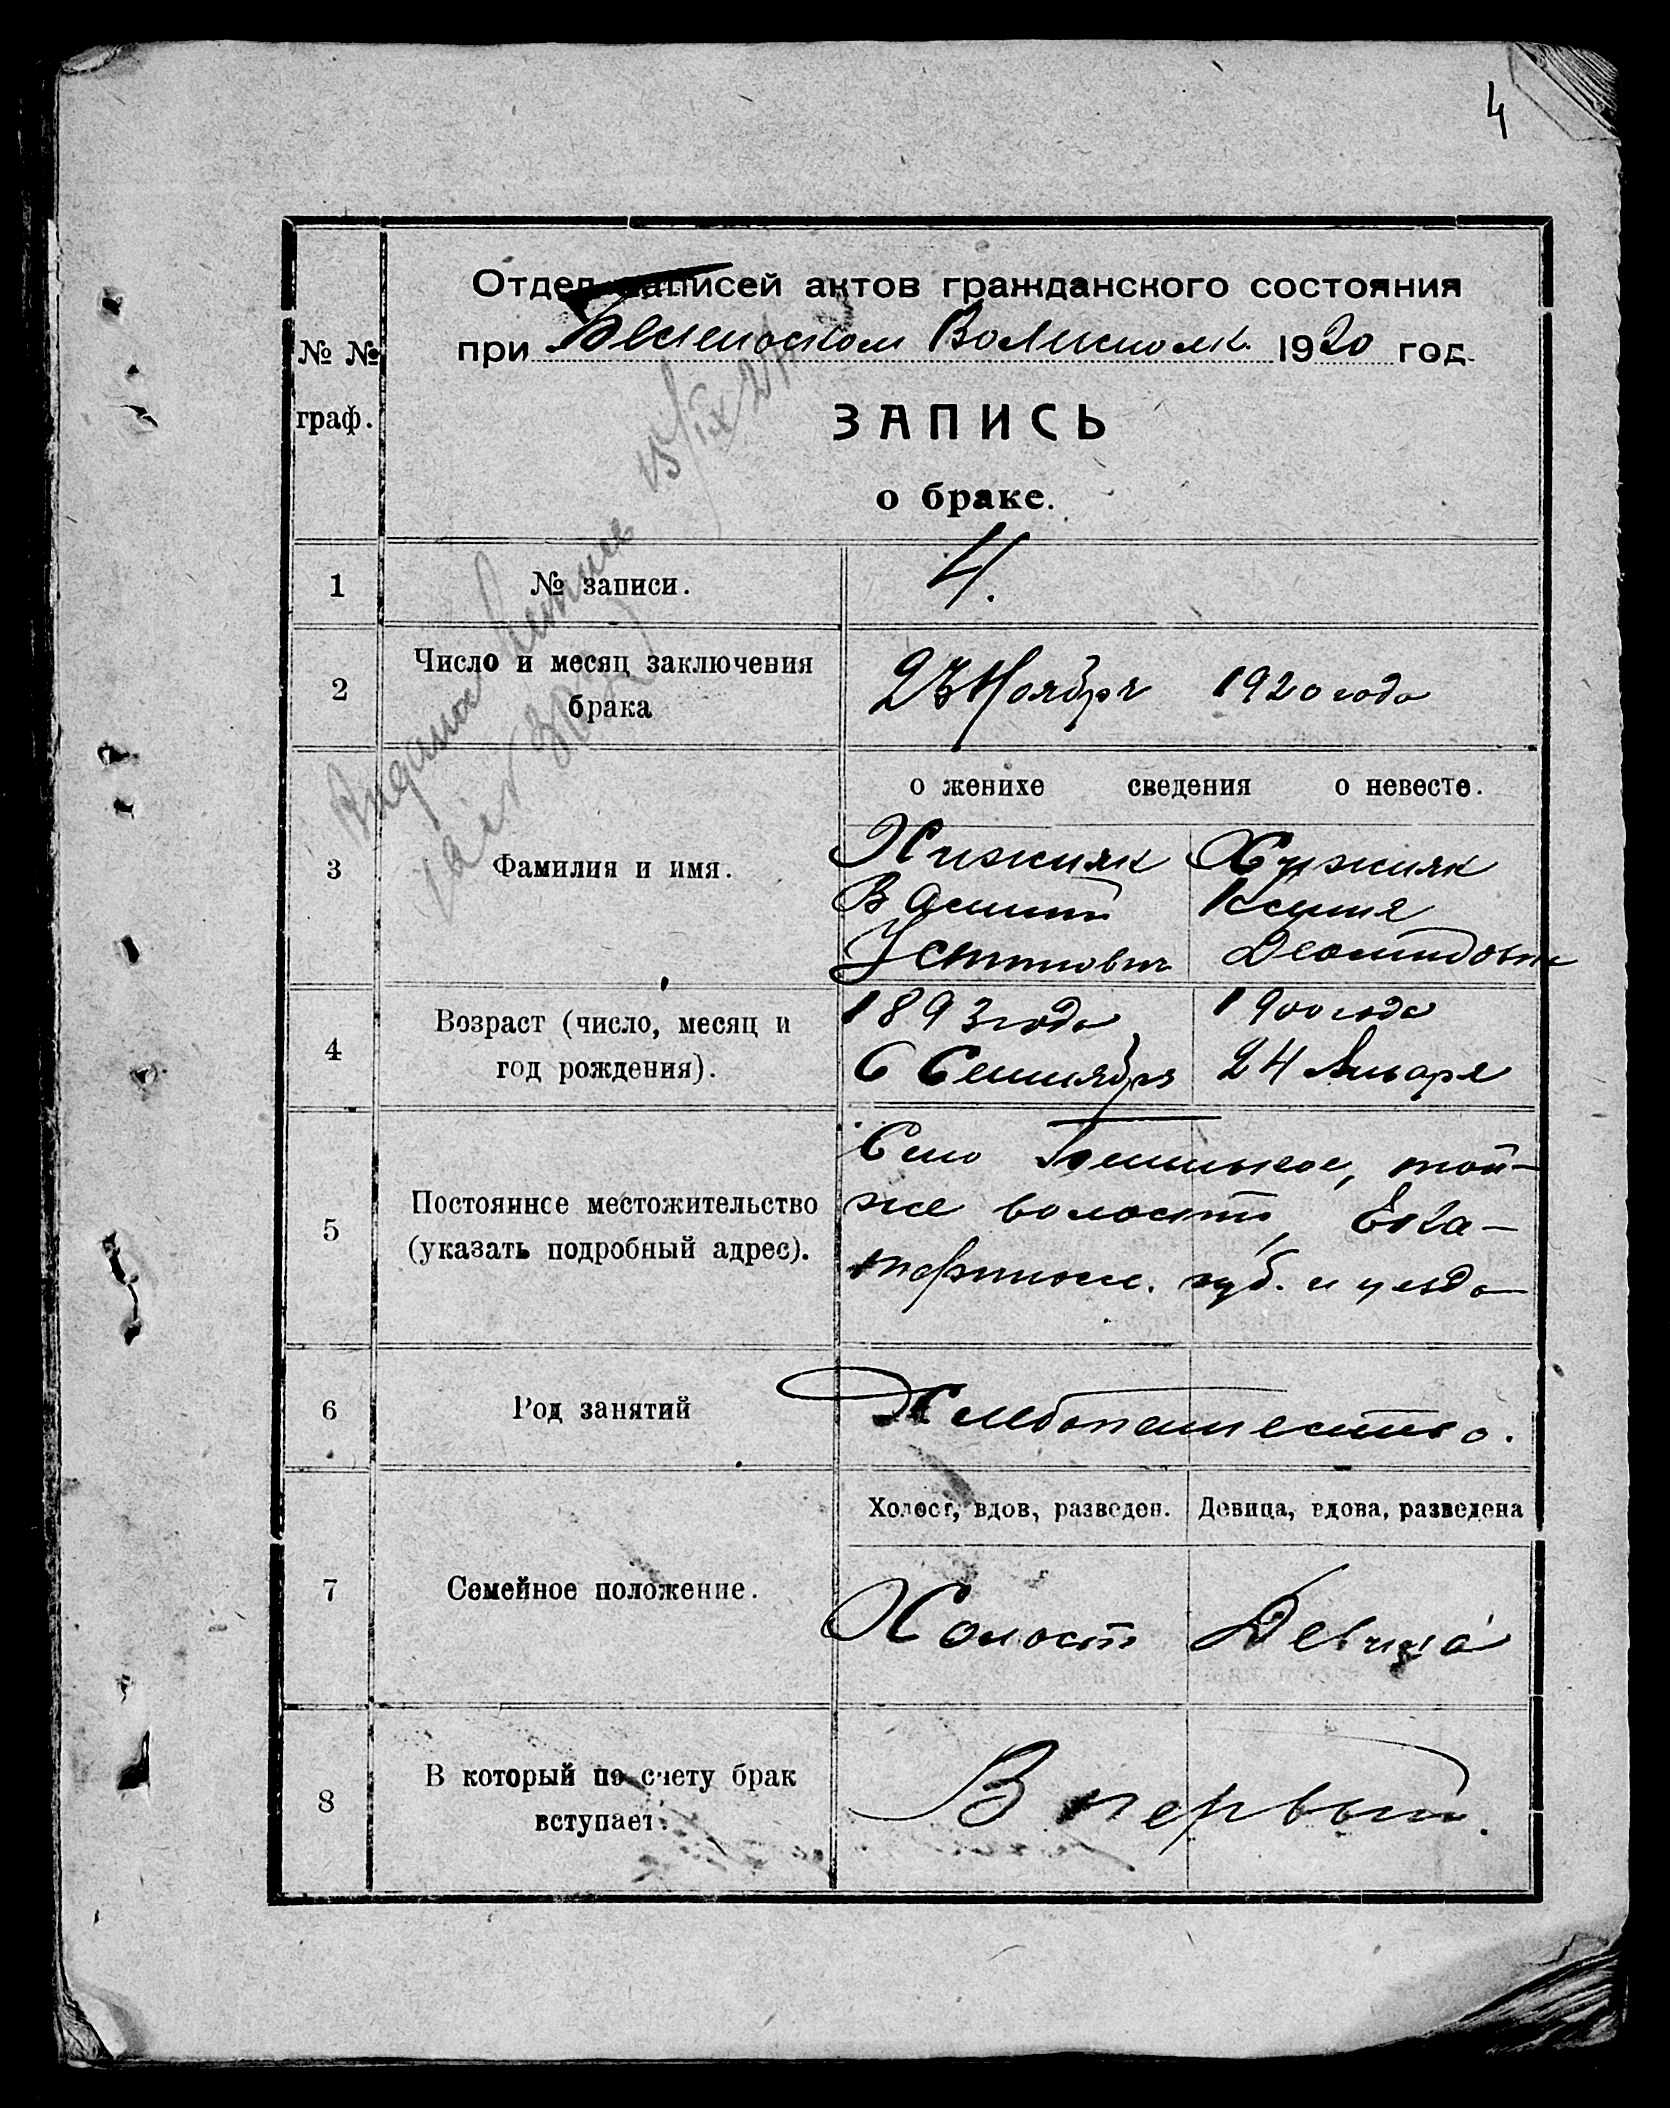 4
Отдел записей актов гражданского состояния
при Волисполк. 1920 год.
№ №
граф.
ЗАПИСЬ
о браке.
15/IX 24
1 № записи. 4.
2 Число и месяц заключения
брака
Ноября 1920 года
о женихе сведения о невесте.
3 Фамилия и имя.
Хижняк Хижняк
Василий Ксения
Устинович Леонидовна
4 Возраст (число, месяц и
год рождения).
1893 года 1900 года
6 Сентября 24 Января
5 Постоянное местожительство
(указать подробный адрес).
Село той-
же волости, Ека-
теринос. губ. и уезда
6 Род занятий Хлебопашество.
Холост, вдов, разведен. Девица, вдова, разведена
7 Семейное положение. Холост Девица
8 В который по счету брак
вступает.
В первый.